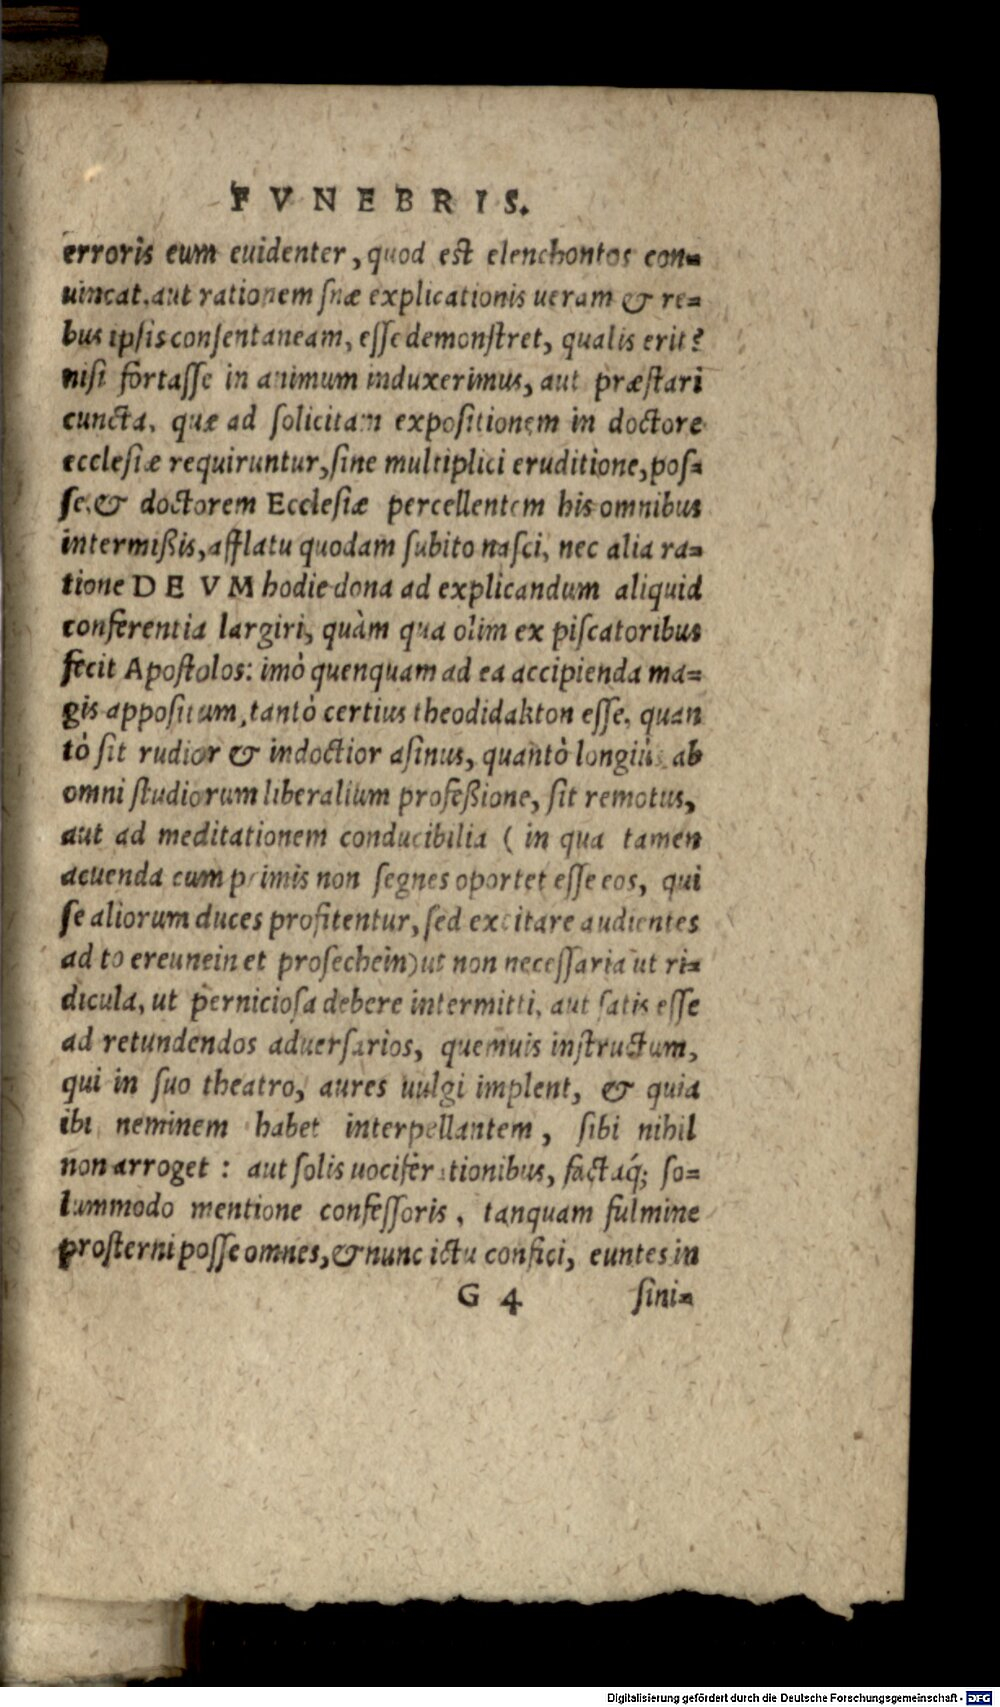 FVNEBRIS.
erroris eum euidenter, quod est elenchontos con-
uincat, aut rationem suæ explicationis ueram & re-
bus ipsis consentaneam, esse demonstret, qualis erit?
nisi fortasse in animum induxerimus, aut præstari
cuncta, quæ ad solicitam expositionem in doctore
ecclesiæ requiruntur, sine multiplici eruditione, pos-
se, & doctorem Ecclesiæ percellentem his omnibus
intermißis, afflatu quodam subito nasci, nec alia ra-
tione DEVM hodie dona ad explicandum aliquid
conferentia largiri, quàm qua olim ex piscatoribus
fecit Apostolos: imò quenquam ad ea accipienda ma-
gis appositum, tantò certius theodidakton esse, quan
tò sit rudior & indoctior asinus, quantò longiùs ab
omni studiorum liberalium profeßione, sit remotus,
aut ad meditationem conducibilia ( in qua tamen
acuenda cum primis non segnes oportet esse eos, qui
se aliorum duces profitentur, sed excitare audientes
ad to ereunein et prosechein) ut non necessaria ut ri-
dicula, ut perniciosa debere intermitti, aut satis esse
ad retundendos aduersarios, quemuis instructum,
qui in suo theatro, aures uulgi implent, & quia
ibi neminem habet interpellantem, sibi nihil
non arroget : aut solis uociferationibus, factaq́; so-
lummodo mentione confessoris, tanquam fulmine
prosterni posse omnes, & nunc ictu confici, euntes in
G 4 sini-
Digitalisierung gefördert durch die Deutsche Forschungsgemeinschaft - DFG